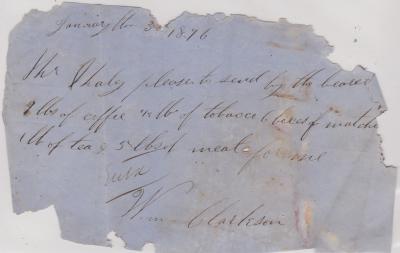 January the 30 1876
Mr Phaley please to send by the bearer
2 lbs of coffie 1/2 lb of tobacco 6 boxes of matche
1 lb of tea & 5 lbs of meal for me
Wm Clarkson